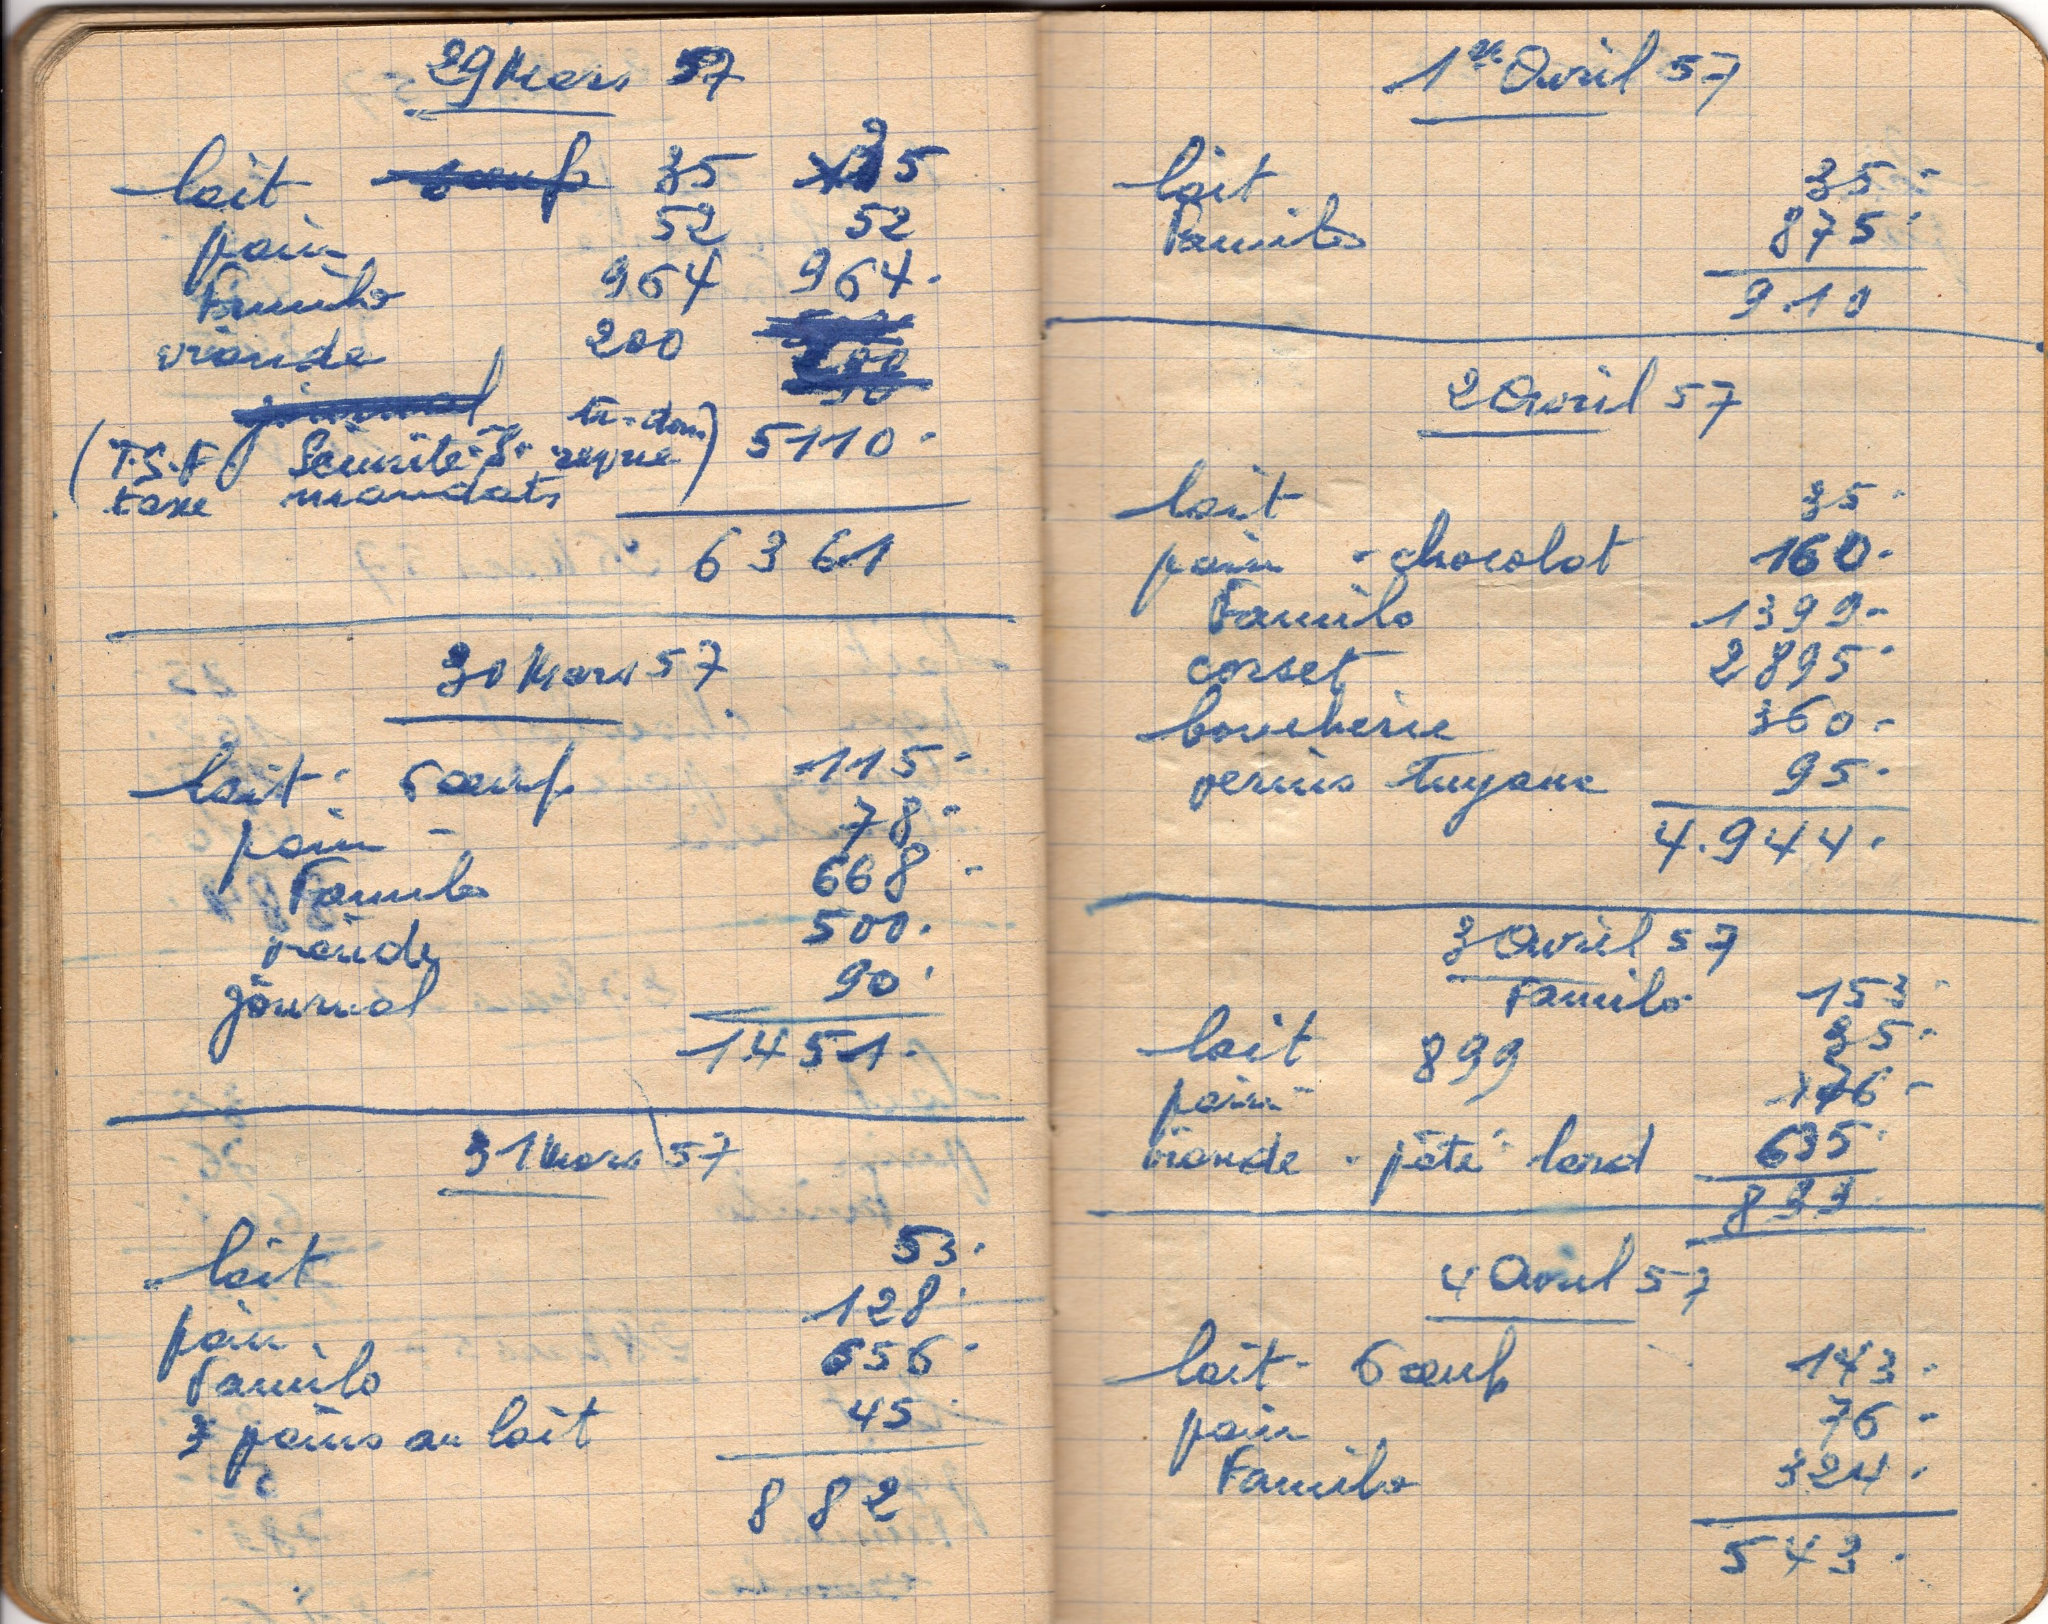 29 Mars 57
lait 35 35
pain 52 52
Familo 964 964.
viande 200
(T.S.F. Sécurité S.
taxe mandats ) 5110.
6361
30 Mars 57
lait - 6 œufs 115.
pain - 78.
Familo 668.
viande 500.
journal 90.
1451.
31 Mars 57
lait 53.
pain. 128.
Familo 656.
3 pains au lait 45.
882
1er Avril 57
lait 35.
Familo 875.
910
2 Avril 57
lait 35.
pain - chocolat 160.
Familo 1399.
corset 2895.
boucherie 360.
vernis tuyaux 95.
4.944.
3 Avril 57
Familo 153.
lait 899 35.
pain 76.
viande - pâté - lard 635.
899.
4 Avril 57
lait - 6 œufs 143.
pain 76.
Familo 324.
543.